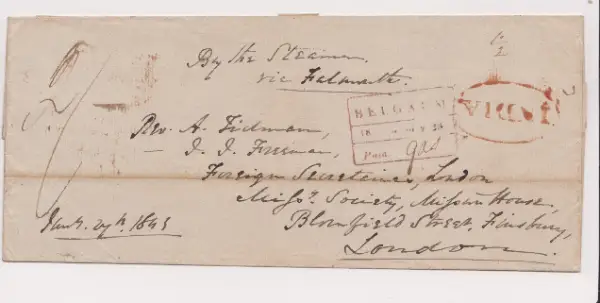 By the Steamer
via Falmouth.
BELGAUM
Paid
INDIA
Rev. A. Tidman,
— J. J. Freeman,
Foreign Secretaries, London
Missy. Society, Mission House,
Blomfield Street, Finsbury,
London.
Jany. 27th. 1845